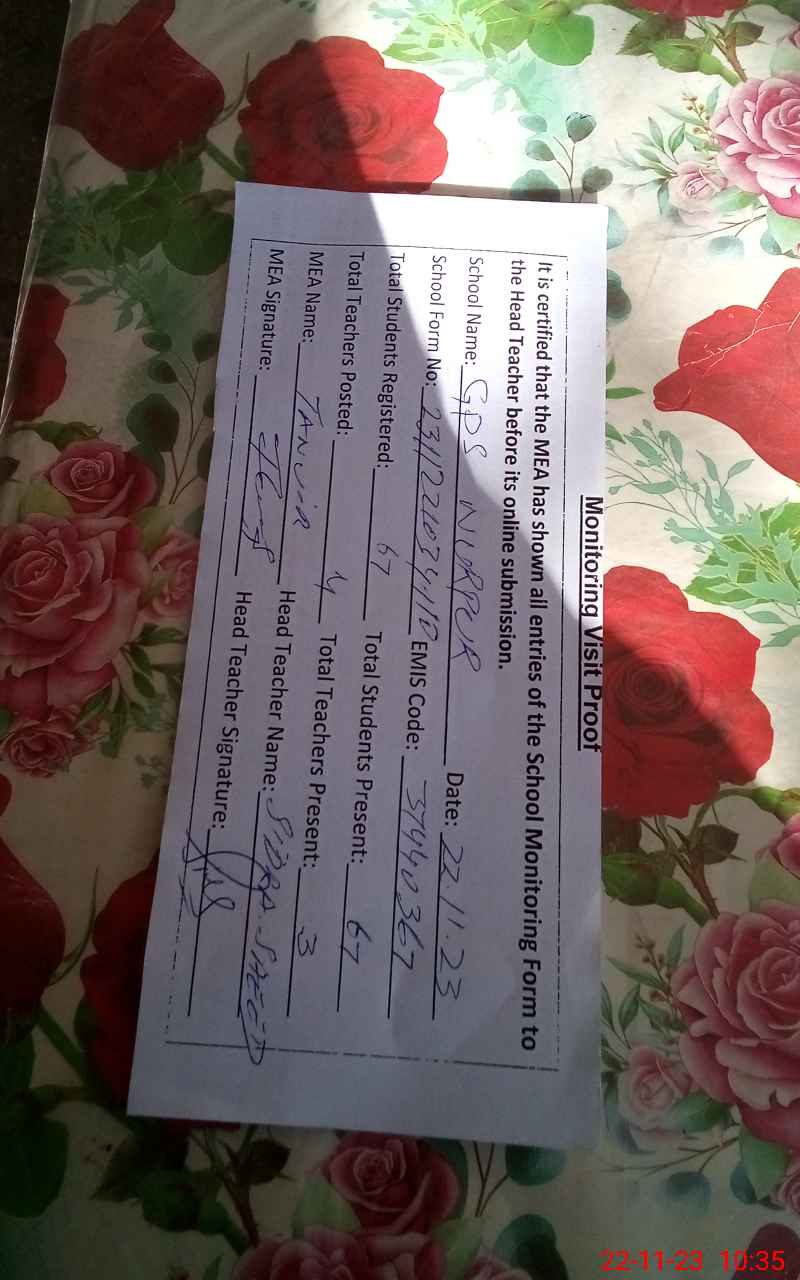 Monitoring Visit Proof
It is certified that the MEA has shown all entries of the School Monitoring Form to
the Head Teacher before its online submission.
School Name: GPS NURPUR Date: 22.11.23
School Form No: EMIS Code: 37440367
Total Students Registered: 67 Total Students Present: 67
Total Teachers Posted: 4 Total Teachers Present: 3
MEA Name: TANVIR Head Teacher Name: SIDRA
MEA Signature: Head Teacher Signature:
22-11-23 10:35